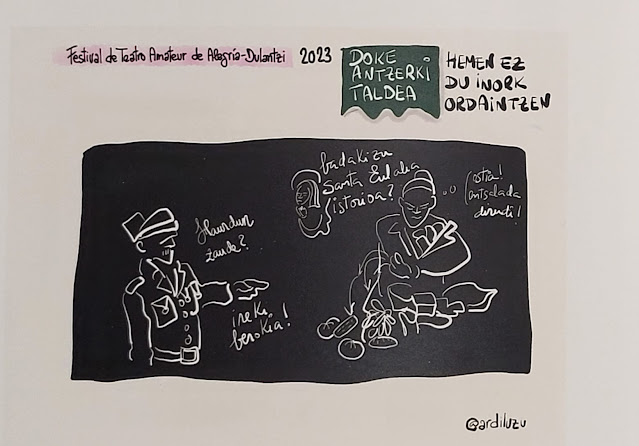 Festival de Teatro Amateur de Alegría-Dulantzi 2023
DOKE
ANTZERKI
TALDEA
HEMEN EZ
DU INORK
ORDAINTZEN
Haurdun
zaude?
ireki
berokia!
badakizu
Santa Eulalia
istorioa?
ostia!
entsalada
dirudi!
@ardiluzu